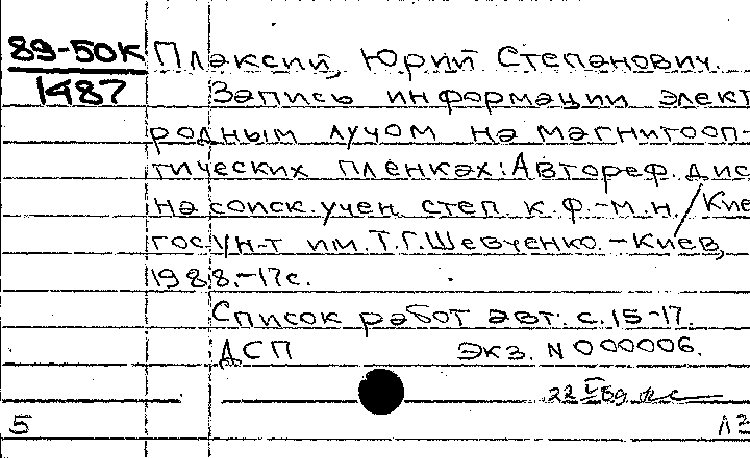 89-50К Плаксий, Юрий Степанович.
1487 Запись информации элект
родным лучом на магнитооп-
тических пленках: Автореф. дис
на соиск. учен. степ к.ф.-м.н. / Кие
гос ун-т им. Т.Г. Шевченко. - Киев,
1988. - 17 с.
Список работ авт. с. 15-17.
ДСП экз. N 000006.
22 V 89
5 ЛЗ